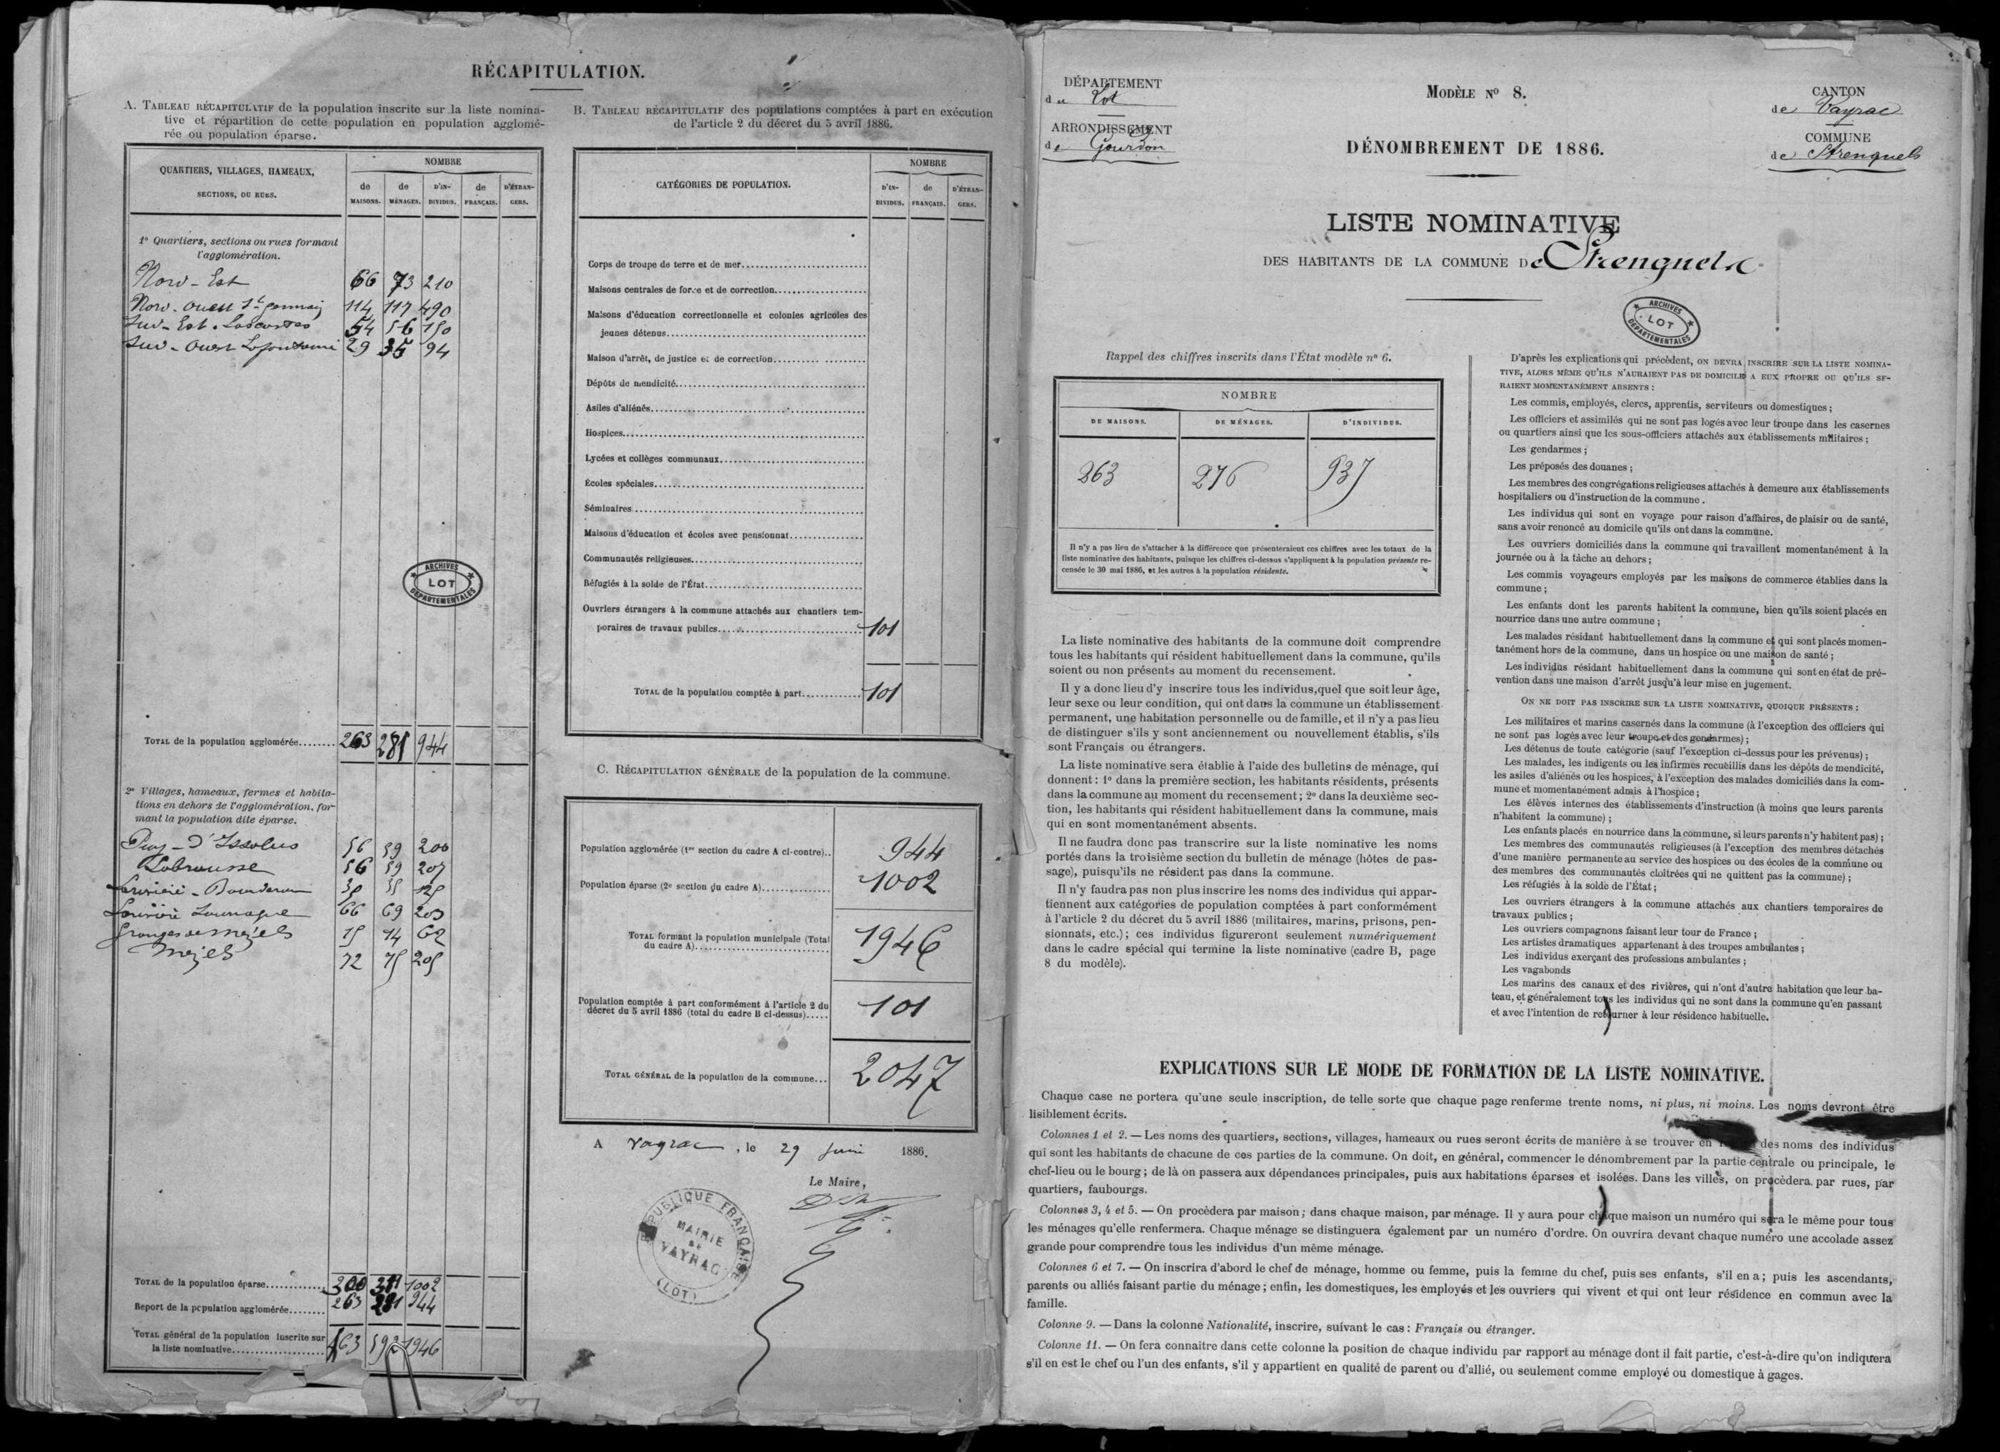 RÉCAPITULATION.
A. TABLEAU RÉCAPITULATIF de la population inscrite sur la liste nomina-
tive et répartition de cette population en population agglomé-
rée ou population éparse.
QUARTIERS, VILLAGES, HAMEAUX,
SECTIONS, OU RUES.
NOMBRE
de MAISONS. de MÉNAGES. D'IN-DIVIDUS. de FRANÇAIS. D'ÉTRAN-GERS.
1º Quartiers, sections ou rues formant
l'agglomération.
Nord-Est 66 73 210
Nord-Ouest St Germain 114 117 490
Sud-Est Lascostes 54 56 150
Sud-Ouest 29 35 94
ARCHIVES LOT DÉPARTEMENTALES
TOTAL de la population agglomérée........ 263 281 944
2º Villages, hameaux, fermes et habita-
tions en dehors de l'agglomération, for-
mant la population dite éparse.
Puy-d'Issolus 56 59 200
Labrousse 56 59 207
35 35 125
66 69 203
Granges de Mézels 15 14 62
Mézels 72 75 205
TOTAL de la population éparse............ 300 311 1002
Report de la population agglomérée........ 263 281 944
TOTAL général de la population inscrite sur
la liste nominative.................... 563 592 1946
B. TABLEAU RÉCAPITULATIF des populations comptées à part en exécution
de l'article 2 du décret du 5 avril 1886.
CATÉGORIES DE POPULATION.
NOMBRE
D'IN-DIVIDUS. de FRANÇAIS. D'ÉTRAN-GERS.
Corps de troupe de terre et de mer
Maisons centrales de force et de correction
Maisons d'éducation correctionnelle et colonies agricoles des
jeunes détenus
Maison d'arrêt, de justice et de correction
Dépôts de mendicité
Asiles d'aliénés
Hospices
Lycées et collèges communaux
Écoles spéciales
Séminaires
Maisons d'éducation et écoles avec pensionnat
Communautés religieuses
Réfugiés à la solde de l'État
Ouvriers étrangers à la commune attachés aux chantiers tem-
poraires de travaux publics 101
TOTAL de la population comptée à part 101
C. RÉCAPITULATION GÉNÉRALE de la population de la commune.
Population agglomérée (1re section du cadre A ci-contre).. 944
Population éparse (2e section du cadre A) 1002
TOTAL formant la population municipale (Total
du cadre A) 1946
Population comptée à part conformément à l'article 2 du
décret du 5 avril 1886 (total du cadre B ci-dessus)..... 101
TOTAL GÉNÉRAL de la population de la commune... 2047
A Vayrac, le 29 Juin 1886.
Le Maire,
RÉPUBLIQUE FRANÇAISE
MAIRIE
DE
VAYRAC
(LOT)
DÉPARTEMENT
du Lot
ARRONDISSEMENT
de Gourdon
MODÈLE Nº 8.
DÉNOMBREMENT DE 1886.
CANTON
de Vayrac
COMMUNE
de Strenquels
LISTE NOMINATIVE
DES HABITANTS DE LA COMMUNE De Strenquels
ARCHIVES LOT DÉPARTEMENTALES
Rappel des chiffres inscrits dans l'État modèle nº 6.
NOMBRE
DE MAISONS. DE MÉNAGES. D'INDIVIDUS.
263 276 937
Il n'y a pas lieu de s'attacher à la différence que présenteraient ces chiffres avec les totaux de la
liste nominative des habitants, puisque les chiffres ci-dessus s'appliquent à la population présente re-
censée le 30 mai 1886, et les autres à la population résidente.
La liste nominative des habitants de la commune doit comprendre
tous les habitants qui résident habituellement dans la commune, qu'ils
soient ou non présents au moment du recensement.
Il y a donc lieu d'y inscrire tous les individus, quel que soit leur âge,
leur sexe ou leur condition, qui ont dans la commune un établissement
permanent, une habitation personnelle ou de famille, et il n'y a pas lieu
de distinguer s'ils y sont anciennement ou nouvellement établis, s'ils
sont Français ou étrangers.
La liste nominative sera établie à l'aide des bulletins de ménage, qui
donnent : 1º dans la première section, les habitants résidents, présents
dans la commune au moment du recensement ; 2º dans la deuxième sec-
tion, les habitants qui résident habituellement dans la commune, mais
qui en sont momentanément absents.
Il ne faudra donc pas transcrire sur la liste nominative les noms
portés dans la troisième section du bulletin de ménage (hôtes de pas-
sage), puisqu'ils ne résident pas dans la commune.
Il n'y faudra pas non plus inscrire les noms des individus qui appar-
tiennent aux catégories de population comptées à part conformément
à l'article 2 du décret du 5 avril 1886 (militaires, marins, prisons, pen-
sionnats, etc.) ; ces individus figureront seulement numériquement
dans le cadre spécial qui termine la liste nominative (cadre B, page
8 du modèle).
D'après les explications qui précèdent, ON DEVRA INSCRIRE SUR LA LISTE NOMINA-
TIVE, ALORS MÊME QU'ILS N'AURAIENT PAS DE DOMICILE A EUX PROPRE OU QU'ILS SE-
RAIENT MOMENTANÉMENT ABSENTS :
Les commis, employés, clercs, apprentis, serviteurs ou domestiques ;
Les officiers et assimilés qui ne sont pas logés avec leur troupe dans les casernes
ou quartiers ainsi que les sous-officiers attachés aux établissements militaires ;
Les gendarmes ;
Les préposés des douanes ;
Les membres des congrégations religieuses attachés à demeure aux établissements
hospitaliers ou d'instruction de la commune.
Les individus qui sont en voyage pour raison d'affaires, de plaisir ou de santé,
sans avoir renoncé au domicile qu'ils ont dans la commune.
Les ouvriers domiciliés dans la commune qui travaillent momentanément à la
journée ou à la tâche au dehors ;
Les commis voyageurs employés par les maisons de commerce établies dans la
commune ;
Les enfants dont les parents habitent la commune, bien qu'ils soient placés en
nourrice dans une autre commune ;
Les malades résidant habituellement dans la commune et qui sont placés momen-
tanément hors de la commune, dans un hospice ou une maison de santé ;
Les individus résidant habituellement dans la commune qui sont en état de pré-
vention dans une maison d'arrêt jusqu'à leur mise en jugement.
ON NE DOIT PAS INSCRIRE SUR LA LISTE NOMINATIVE, QUOIQUE PRÉSENTS :
Les militaires et marins casernés dans la commune (à l'exception des officiers qui
ne sont pas logés avec leur troupe et des gendarmes) ;
Les détenus de toute catégorie (sauf l'exception ci-dessus pour les prévenus) ;
Les malades, les indigents ou les infirmes recueillis dans les dépôts de mendicité,
les asiles d'aliénés ou les hospices, à l'exception des malades domiciliés dans la com-
mune et momentanément admis à l'hospice ;
Les élèves internes des établissements d'instruction (à moins que leurs parents
n'habitent la commune) ;
Les enfants placés en nourrice dans la commune, si leurs parents n'y habitent pas) ;
Les membres des communautés religieuses (à l'exception des membres détachés
d'une manière permanente au service des hospices ou des écoles de la commune ou
des membres des communautés cloîtrées qui ne quittent pas la commune) ;
Les réfugiés à la solde de l'État ;
Les ouvriers étrangers à la commune attachés aux chantiers temporaires de
travaux publics ;
Les ouvriers compagnons faisant leur tour de France ;
Les artistes dramatiques appartenant à des troupes ambulantes ;
Les individus exerçant des professions ambulantes ;
Les vagabonds
Les marins des canaux et des rivières, qui n'ont d'autre habitation que leur ba-
teau, et généralement tous les individus qui ne sont dans la commune qu'en passant
et avec l'intention de retourner à leur résidence habituelle.
EXPLICATIONS SUR LE MODE DE FORMATION DE LA LISTE NOMINATIVE.
Chaque case ne portera qu'une seule inscription, de telle sorte que chaque page renferme trente noms, ni plus, ni moins. Les noms devront être
lisiblement écrits.
Colonnes 1 et 2. — Les noms des quartiers, sections, villages, hameaux ou rues seront écrits de manière à se trouver en des noms des individus
qui sont les habitants de chacune de ces parties de la commune. On doit, en général, commencer le dénombrement par la partie centrale ou principale, le
chef-lieu ou le bourg ; de là on passera aux dépendances principales, puis aux habitations éparses et isolées. Dans les villes, on procèdera par rues, par
quartiers, faubourgs.
Colonnes 3, 4 et 5. — On procèdera par maison ; dans chaque maison, par ménage. Il y aura pour chaque maison un numéro qui sera le même pour tous
les ménages qu'elle renfermera. Chaque ménage se distinguera également par un numéro d'ordre. On ouvrira devant chaque numéro une accolade assez
grande pour comprendre tous les individus d'un même ménage.
Colonnes 6 et 7. — On inscrira d'abord le chef de ménage, homme ou femme, puis la femme du chef, puis ses enfants, s'il en a ; puis les ascendants,
parents ou alliés faisant partie du ménage ; enfin, les domestiques, les employés et les ouvriers qui vivent et qui ont leur résidence en commun avec la
famille.
Colonne 9. — Dans la colonne Nationalité, inscrire, suivant le cas : Français ou étranger.
Colonne 11. — On fera connaitre dans cette colonne la position de chaque individu par rapport au ménage dont il fait partie, c'est-à-dire qu'on indiquera
s'il en est le chef ou l'un des enfants, s'il y appartient en qualité de parent ou d'allié, ou seulement comme employé ou domestique à gages.